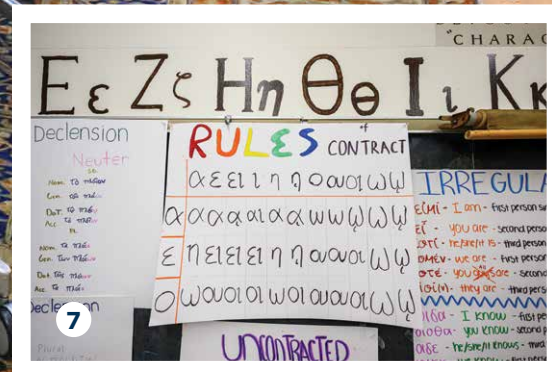 "CHARAC
Εε Ζζ Ηη Θθ Ιι Κκ
Declension
Neuter
Nom. τὸ
Gen. τοῦ
Dat. τῷ
Acc. τὸ
Nom. τὰ
Gen. τῶν
Dat. τοῖς
Acc. τὰ
Declension
Plural
RULES of CONTRACT
α ε ει ι η ῃ ο ου οι ω ῳ
α α α ᾳ αι α ᾳ ω ω ῳ ω ῳ
ε η ει ει ει η ῃ ου ου οι ω ῳ
ο ω ου οι οι ω οι ου ου οι ω ῳ
UNCONTRACTED
IRREGULA
εἰμί - I am - first person si
εἶ - you are - second perso
ἐστί - he/she/it is - third person
ομέν - we are - first person
στέ - you are - secon
they are - third pers
οἶδα - I know - first pe
οἶσθα - you know - second p
οἶδε - he/she/it knows - third
we know - first person
7